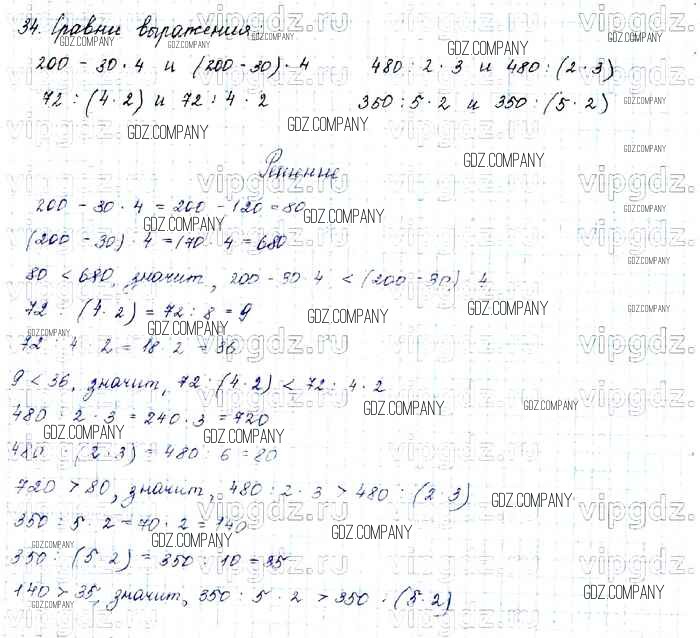 34. Сравни выражения.
200 - 30 · 4 и (200 - 30) · 4 480 : 2 · 3 и 480 : (2 · 3)
72 : (4 · 2) и 72 : 4 · 2 350 : 5 · 2 и 350 : (5 · 2)
Решение
200 - 30 · 4 = 200 - 120 = 80
(200 - 30) · 4 = 170 · 4 = 680
80 < 680, значит, 200 - 30 · 4 < (200 - 30) · 4
72 : (4 · 2) = 72 : 8 = 9
72 : 4 · 2 = 18 · 2 = 36
9 < 36, значит, 72 : (4 · 2) < 72 : 4 · 2
480 : 2 · 3 = 240 · 3 = 720
480 : (2 · 3) = 480 : 6 = 80
720 > 80, значит, 480 : 2 · 3 > 480 : (2 · 3)
350 : 5 · 2 = 70 · 2 = 140
350 : (5 · 2) = 350 : 10 = 35
140 > 35, значит, 350 : 5 · 2 > 350 : (5 · 2)
vipgdz.ru
GDZ.COMPANY